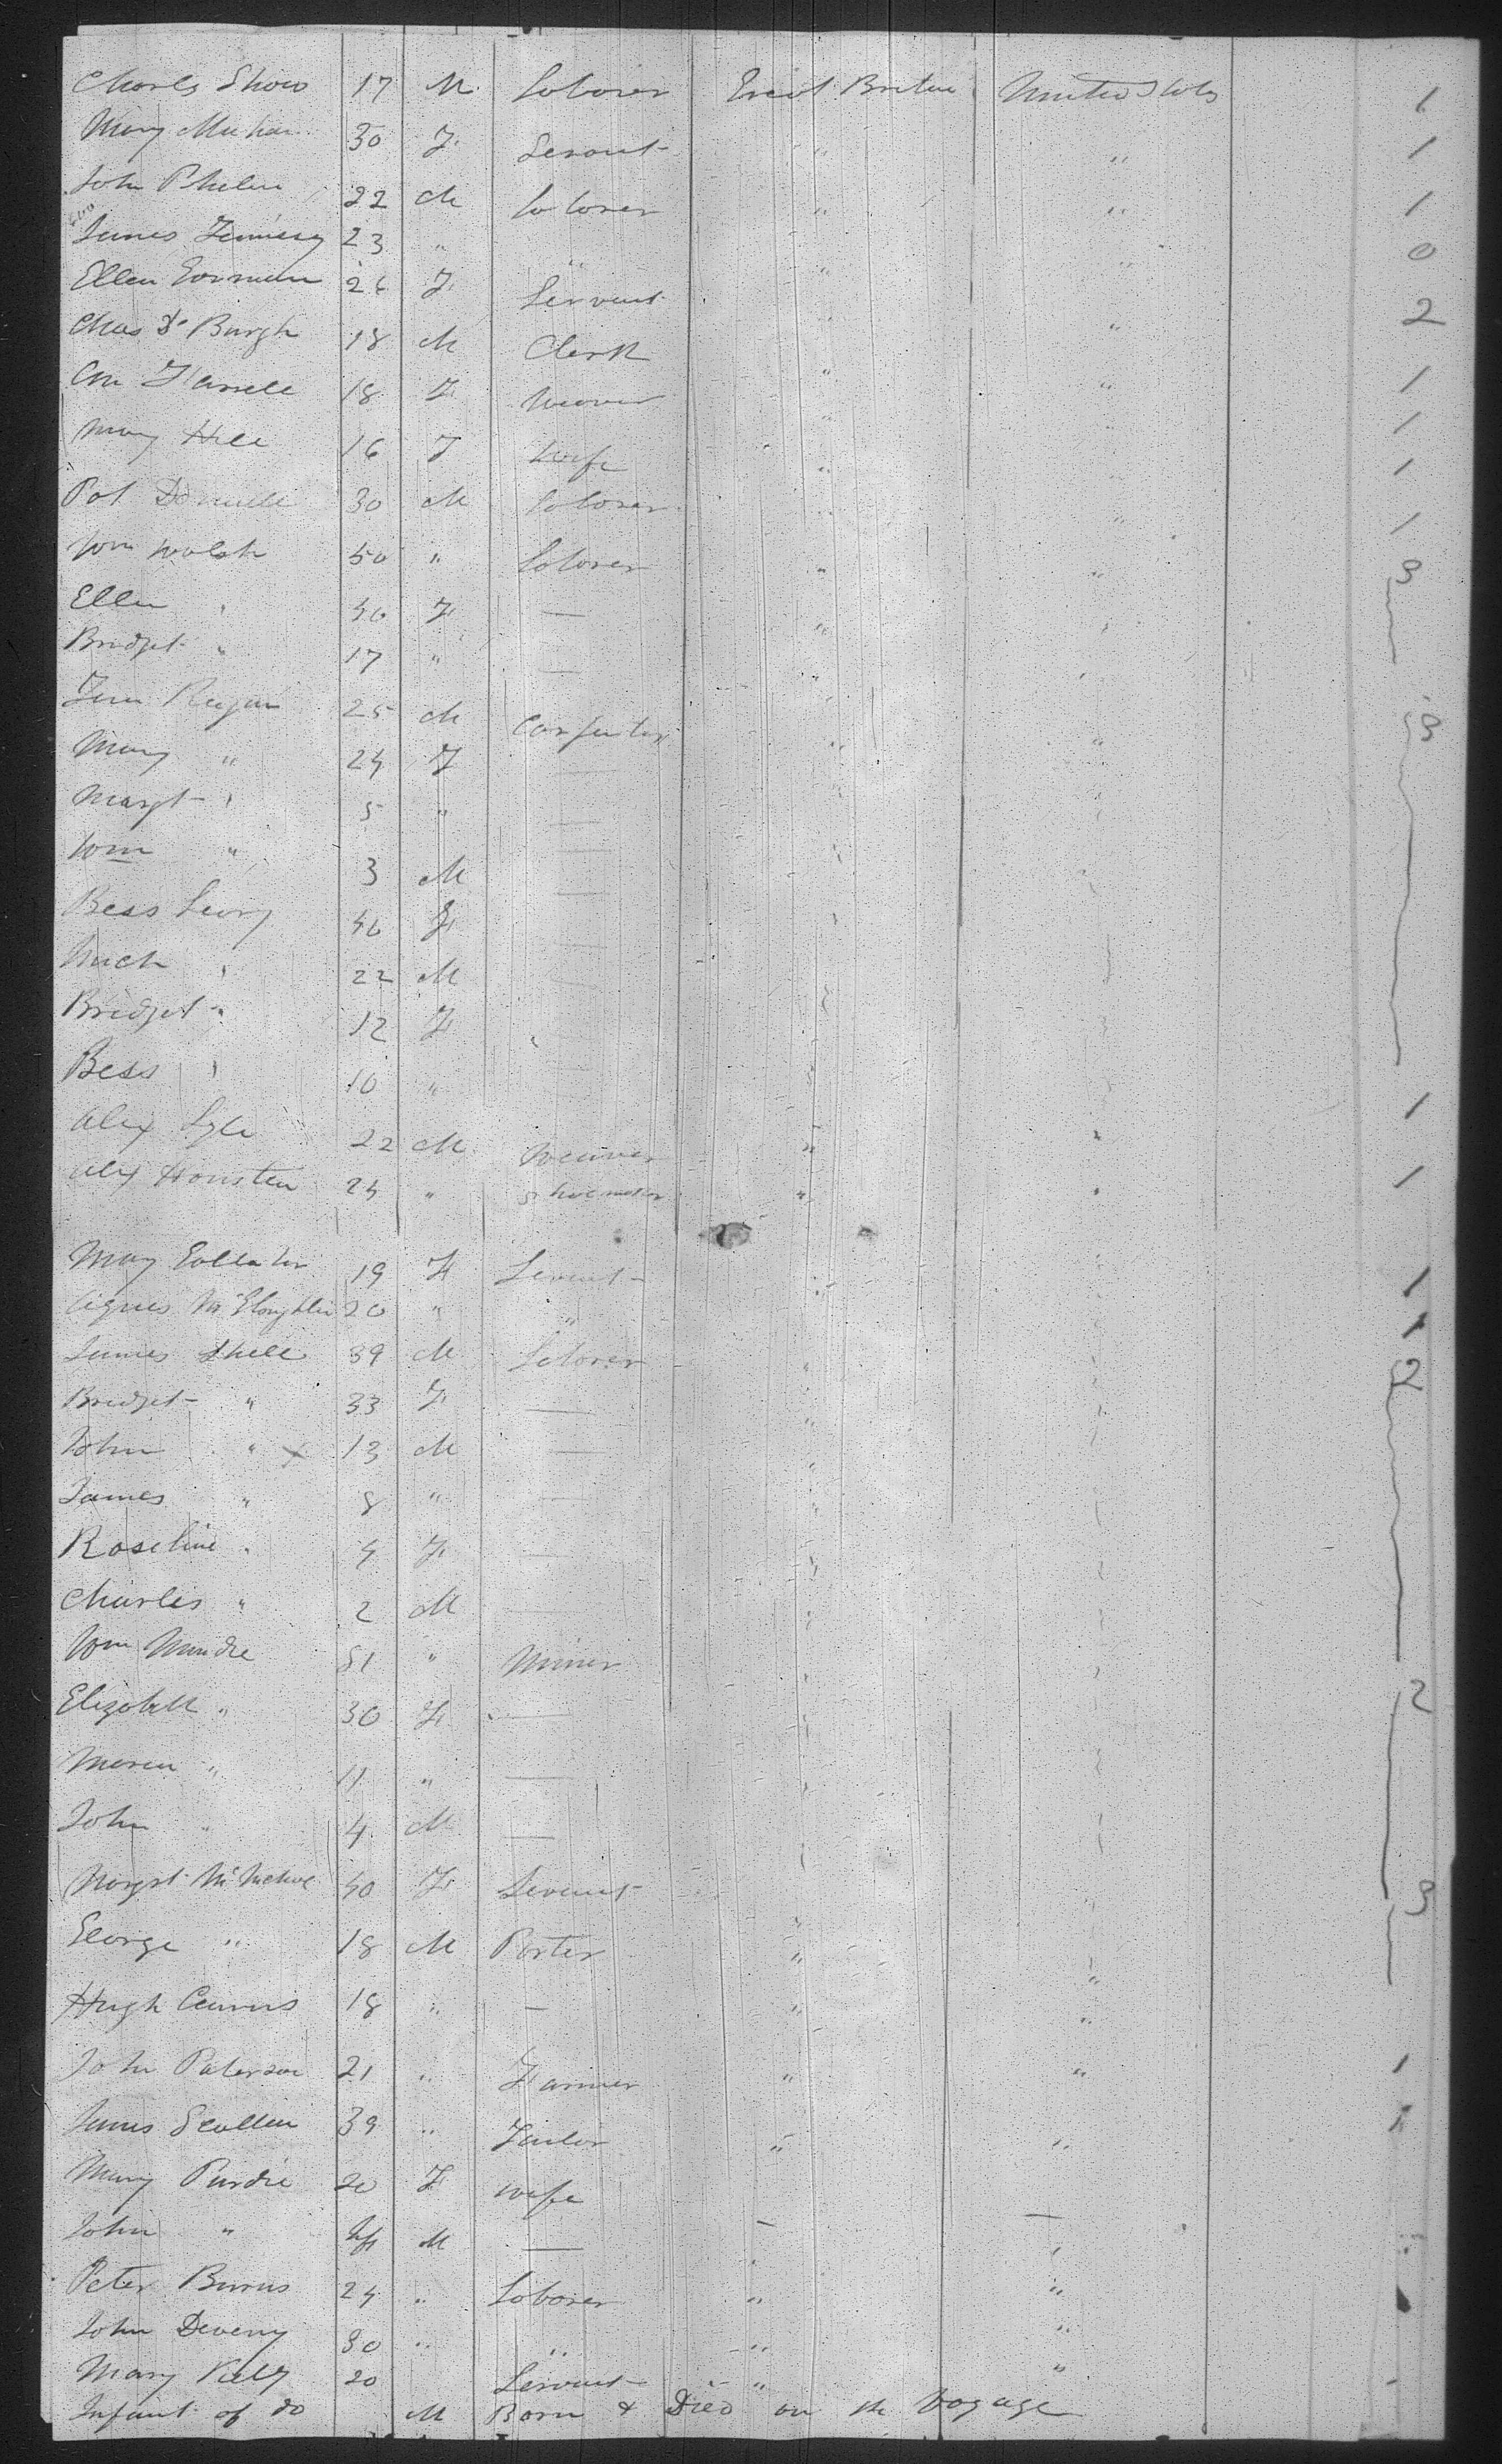 Charls Shaw 17 M. Laborer Great Britan United States 1
Mary 30 F. Servant " " 1
John Phelan 22 M Laborer " " 1
James 23 " " " " 0
Ellen Gorman 26 F. Servant " " 2
Chas De Burgh 18 M Clerk " "
Ann Farrell 18 F. Weaver " " 1
Mary Hill 16 F Wife " " 1
Pat Donnell 30 M Laborer " " 1
Wm Walsh 50 " Laborer " " 3
Ellen " 40 F — " "
Bridget " 17 " — " "
Regan 25 M Carpenter " " 3
Mary " 24 F — " "
Margt " 5 " —
Wm " 3 M —
Bess Leary 40 F —
Mich " 22 M —
Bridget " 12 F
Bess " 10 "
Alex Lyle 22 M Weaver " " 1
Alex Housten 24 " Shoemaker " " 1
Mary 19 F Servant " 1
Agnes 20 " " 1
James Shell 39 M Laborer " 2
Bridget " 33 F. —
John " x 13 M —
James " 8 " —
Roseline " 4 F. —
Charles " 2 M —
Wm Mundie 31 " Miner 2
Elizabeth " 30 F. —
" 11 " —
John " 4 M —
Margt 40 F. Servant 3
George " 18 M Porter "
Hugh Cairns 18 " — " "
John Paterson 21 " Farmer " " 1
James Scullen 39 " Tailor " " 1
Mary Purdie 20 F. Wife
John " M — — —
Peter Burns 24 " Laborer " "
John Deveny 30 " " " "
Mary Kelly 20 Servant " "
Infant of do M Born & Died on the Voyage